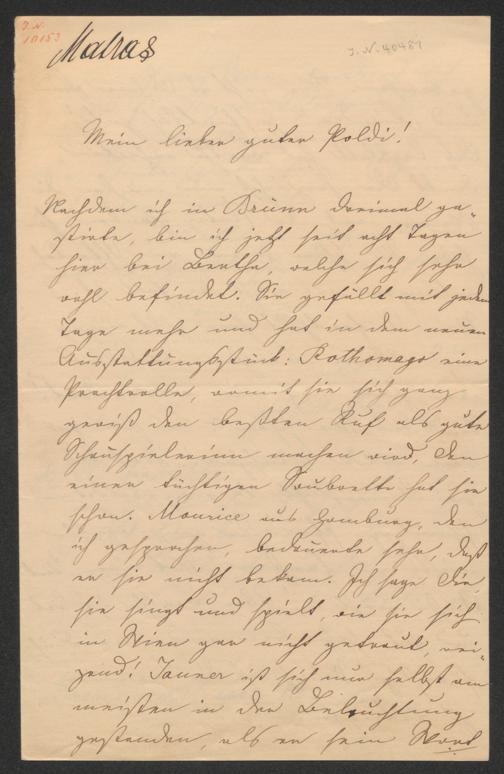 J. N.
10153
Matras
J. N. 40487
Mein lieber guter Poldi!
Nachdem ich in Brünn dreimal ga-
stirte, bin ich jetzt seit acht Tagen
hier bei Bertha, welche sich sehr
wohl befindet. Sie gefällt mit jedem
Tage mehr und hat in dem neuen
Ausstattungsstück: Rothomago eine
Prachtrolle, womit sie sich ganz
gewiß den beßten Ruf als gute
Schauspielerinn machen wird, den
einer tüchtigen Soubrette hat sie
schon. Maurice aus Hamburg, den
ich gesprochen, bedauerte sehr, daß
er sie nicht bekam. Ich sage Dir,
sie singt und spielt, wie sie sich
in Wien gar nicht getraut, rei-
zend! Jauner ist sich nur selbst am
meisten in der Beleuchtung
gestanden, als er sein Wort